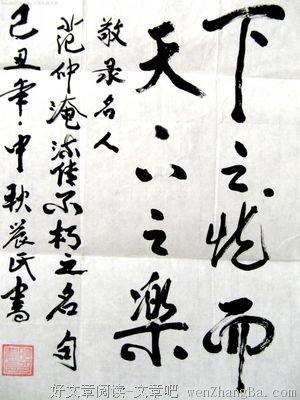 下之忧而
天下之樂
敬录名人
范仲淹流传不朽之名句
己丑年·中秋氏書
好文章阅读-文章吧 wenZhangBa.com